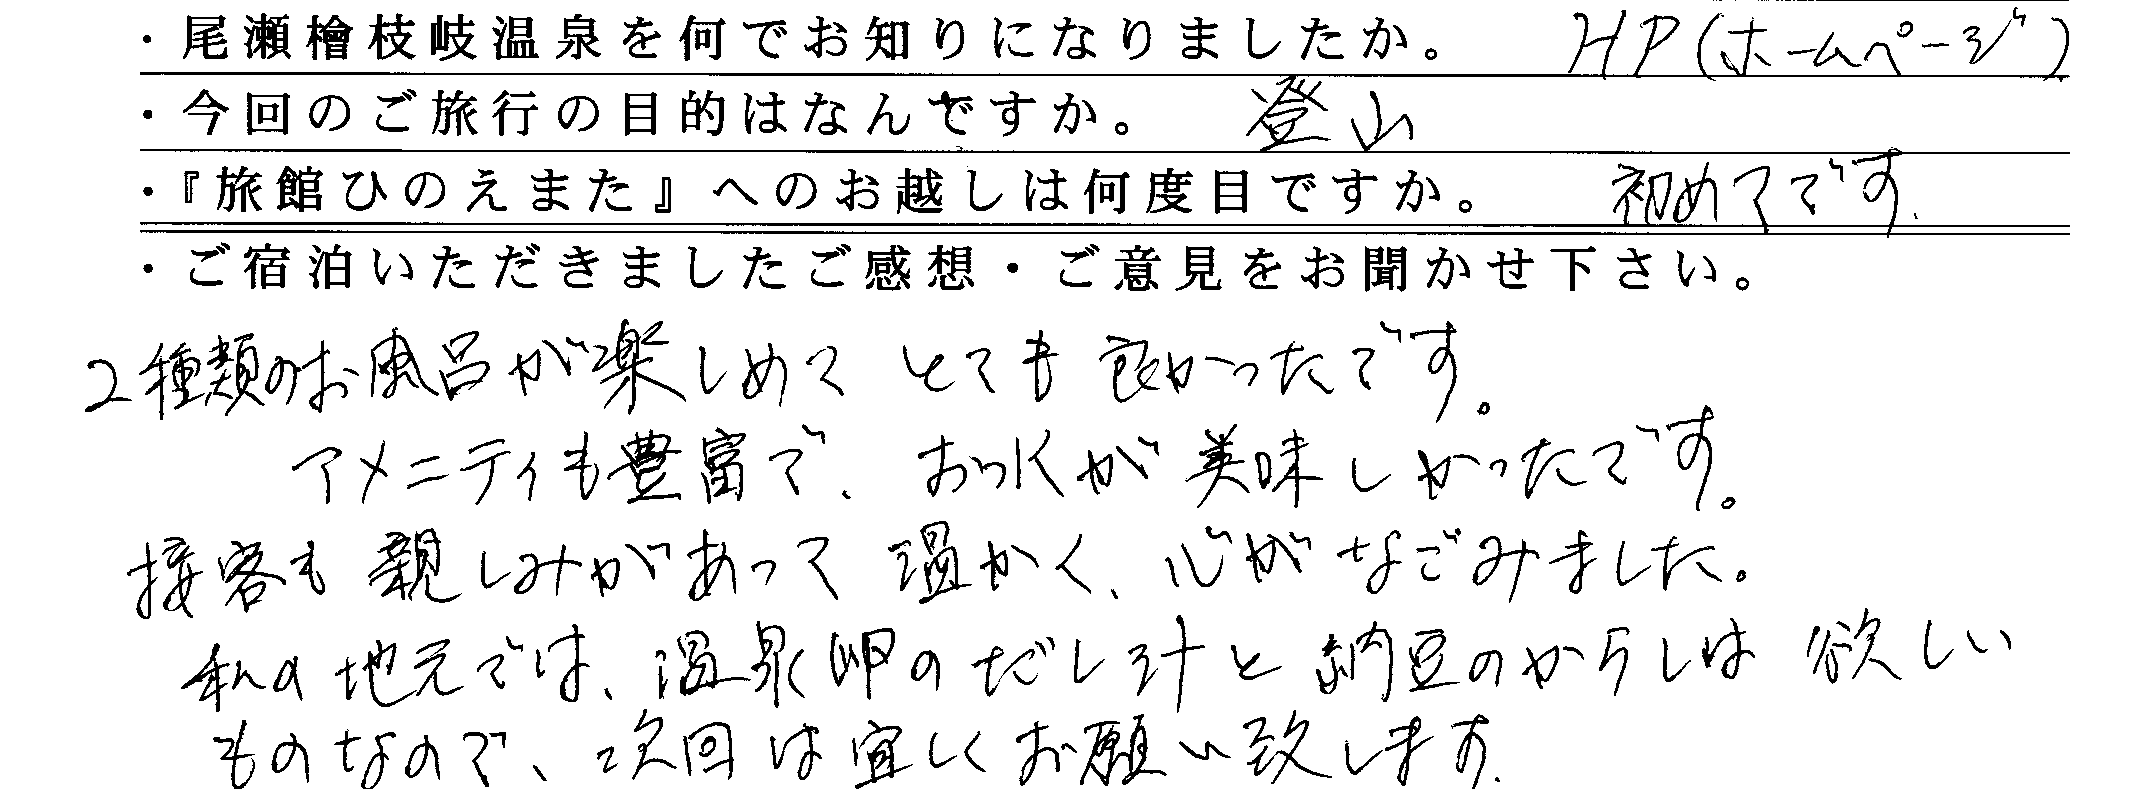 ・尾瀬檜枝岐温泉を何でお知りになりましたか。 HP(ホームページ)
・今回のご旅行の目的はなんですか。 登山
・『旅館ひのえまた』へのお越しは何度目ですか。 初めてです.
・ご宿泊いただきましたご感想・ご意見をお聞かせ下さい。
2種類のお風呂が楽しめて とても 良かったです。
アメニティも豊富で、お水が美味しかったです。
接客も親しみがあって 温かく、心がなごみました。
私の地元では、温泉卵のだし汁と納豆のからしは 欲しい
ものなので、次回は宜しくお願い致します.